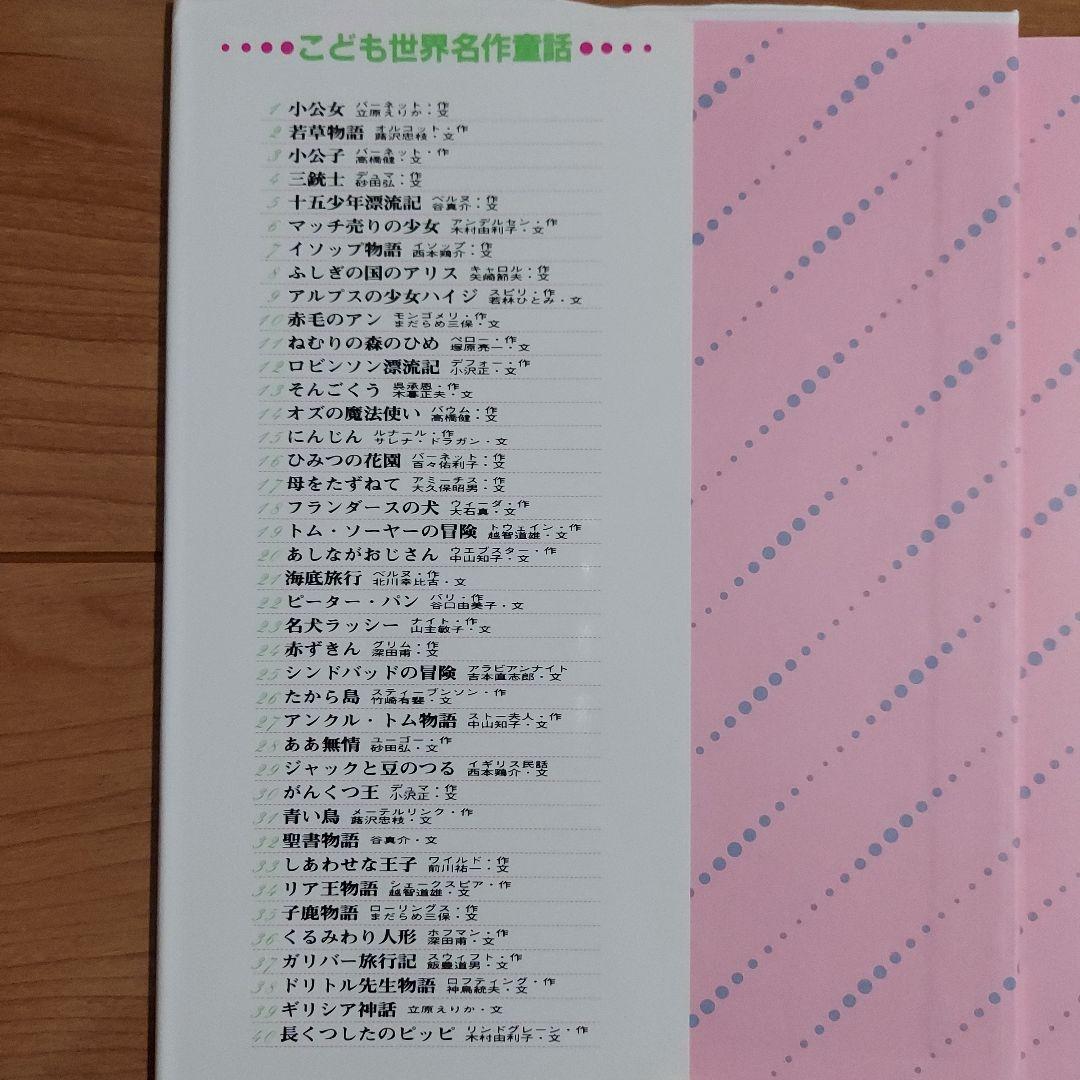 こども世界名作童話
1 小公女 バーネット・作 立原えりか・文
2 若草物語 オルコット・作 蕗沢忠枝・文
3 小公子 バーネット・作 高橋健・文
4 三銃士 デュマ・作 砂田弘・文
5 十五少年漂流記 ベルヌ・作 谷真介・文
6 マッチ売りの少女 アンデルセン・作 木村由利子・文
7 イソップ物語 イソップ・作 西本鶏介・文
8 ふしぎの国のアリス キャロル・作 矢崎節夫・文
9 アルプスの少女ハイジ スピリ・作 若林ひとみ・文
10 赤毛のアン モンゴメリ・作 まだらめ三保・文
11 ねむりの森のひめ ペロー・作 塚原亮一・文
12 ロビンソン漂流記 デフォー・作 小沢正・文
13 そんごくう 呉承恩・作 木暮正夫・文
14 オズの魔法使い バウム・作 高橋健・文
15 にんじん ルナール・作 サレナ・ドラガン・文
16 ひみつの花園 バーネット・作 百々佑利子・文
17 母をたずねて アミーチス・作 大久保昭男・文
18 フランダースの犬 ウィーダ・作 大石真・文
19 トム・ソーヤーの冒険 トウェイン・作 越智道雄・文
20 あしながおじさん ウエブスター・作 中山知子・文
21 海底旅行 ベルヌ・作 北川幸比古・文
22 ピーター・パン バリ・作 谷口由美子・文
23 名犬ラッシー ナイト・作 山主敏子・文
24 赤ずきん グリム・作 深田甫・文
25 シンドバッドの冒険 アラビアンナイト 吉本直志郎・文
26 たから島 スティーブンソン・作 竹崎有斐・文
27 アンクル・トム物語 ストー夫人・作 中山知子・文
28 ああ無情 ユーゴー・作 砂田弘・文
29 ジャックと豆のつる イギリス民話 西本鶏介・文
30 がんくつ王 デュマ・作 小沢正・文
31 青い鳥 メーテルリンク・作 蕗沢忠枝・文
32 聖書物語 谷真介・文
33 しあわせな王子 ワイルド・作 前川祐一・文
34 リア王物語 シェークスピア・作 越智道雄・文
35 子鹿物語 ローリングス・作 まだらめ三保・文
36 くるみわり人形 ホフマン・作 深田甫・文
37 ガリバー旅行記 スウィフト・作 飯豊道男・文
38 ドリトル先生物語 ロフティング・作 神鳥統夫・文
39 ギリシア神話 立原えりか・文
40 長くつしたのピッピ リンドグレーン・作 木村由利子・文